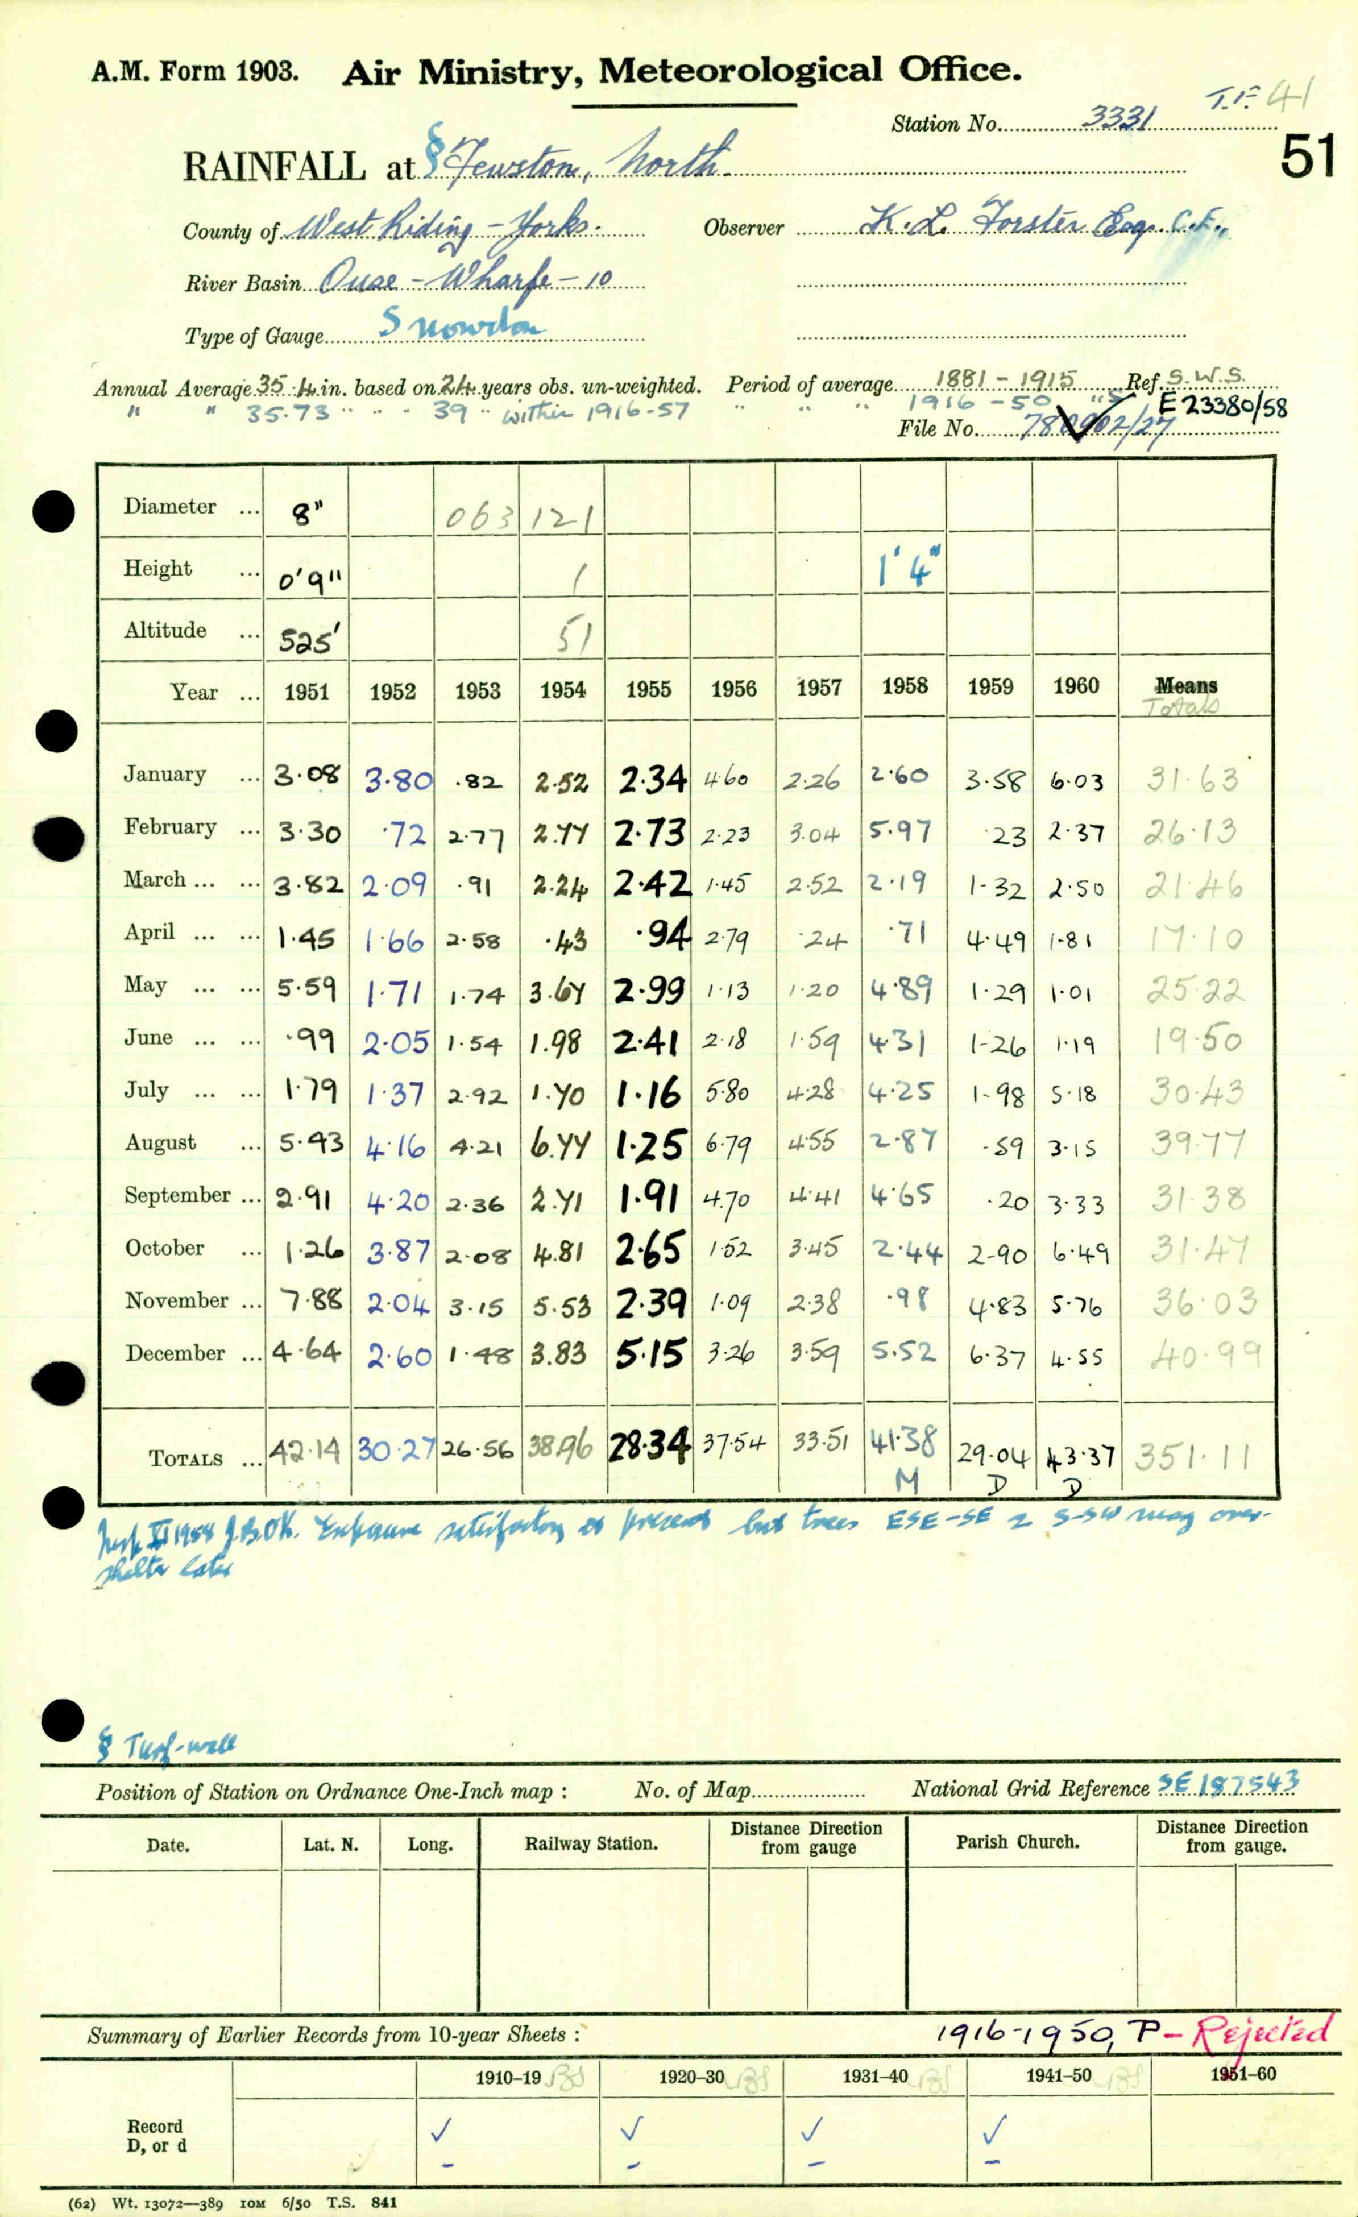 A.M. Form 1903. Air Ministry, Meteorological Office.
T.F. 41
Station No. 3331
51
RAINFALL at § Fewston, North.
County of West Riding - Yorks. Observer K. L. Forster Esq. C.E.,
River Basin Ouse - Wharfe - 10
Type of Gauge Snowdon
Annual Average 35.4 in. based on 24 years obs. un-weighted. Period of average 1881 - 1915 Ref. S.W.S.
" " 35.73 " " " 39 " within 1916-57 " " " 1916 - 50 "S" E 23380/58
File No. 780902/27
Diameter ... 8" 063 121
Height ... 0'9" 1 1'4"
Altitude ... 525' 51
Year ... 1951 1952 1953 1954 1955 1956 1957 1958 1959 1960 Means
Totals
January ... 3.08 3.80 .82 2.52 2.34 4.60 2.26 2.60 3.58 6.03 31.63
February ... 3.30 .72 2.77 2.77 2.73 2.23 3.04 5.97 .23 2.37 26.13
March ... ... 3.82 2.09 .91 2.24 2.42 1.45 2.52 2.19 1.32 2.50 21.46
April ... ... 1.45 1.66 2.58 .43 .94 2.79 .24 .71 4.49 1.81 17.10
May ... ... 5.59 1.71 1.74 3.67 2.99 1.13 1.20 4.89 1.29 1.01 25.22
June ... ... .99 2.05 1.54 1.98 2.41 2.18 1.59 4.31 1.26 1.19 19.50
July ... ... 1.79 1.37 2.92 1.70 1.16 5.80 4.28 4.25 1.98 5.18 30.43
August ... 5.43 4.16 4.21 6.77 1.25 6.79 4.55 2.87 .59 3.15 39.77
September ... 2.91 4.20 2.36 2.71 1.91 4.70 4.41 4.65 .20 3.33 31.38
October ... 1.26 3.87 2.08 4.81 2.65 1.52 3.45 2.44 2.90 6.49 31.47
November ... 7.88 2.04 3.15 5.53 2.39 1.09 2.38 .98 4.83 5.76 36.03
December ... 4.64 2.60 1.48 3.83 5.15 3.26 3.59 5.52 6.37 4.55 40.99
TOTALS ... 42.14 30.27 26.56 38.96 28.34 37.54 33.51 41.38 29.04 43.37 351.11
M D D
Insp. XI 1958 Exposure satisfactory at present but trees ESE-SE & S-SW may over-
shelter later
§ Turf-wall
Position of Station on Ordnance One-Inch map : No. of Map National Grid Reference SE 187543
Date. Lat. N. Long. Railway Station. Distance from Direction gauge Parish Church. Distance from Direction gauge.
Summary of Earlier Records from 10-year Sheets : 1916-1950, P - Rejected
1910–19 1920–30 1931–40 1941–50 1951–60
Record ✓ ✓ ✓ ✓
D, or d - - - -
(62) Wt. 13072—389 10M 6/50 T.S. 841